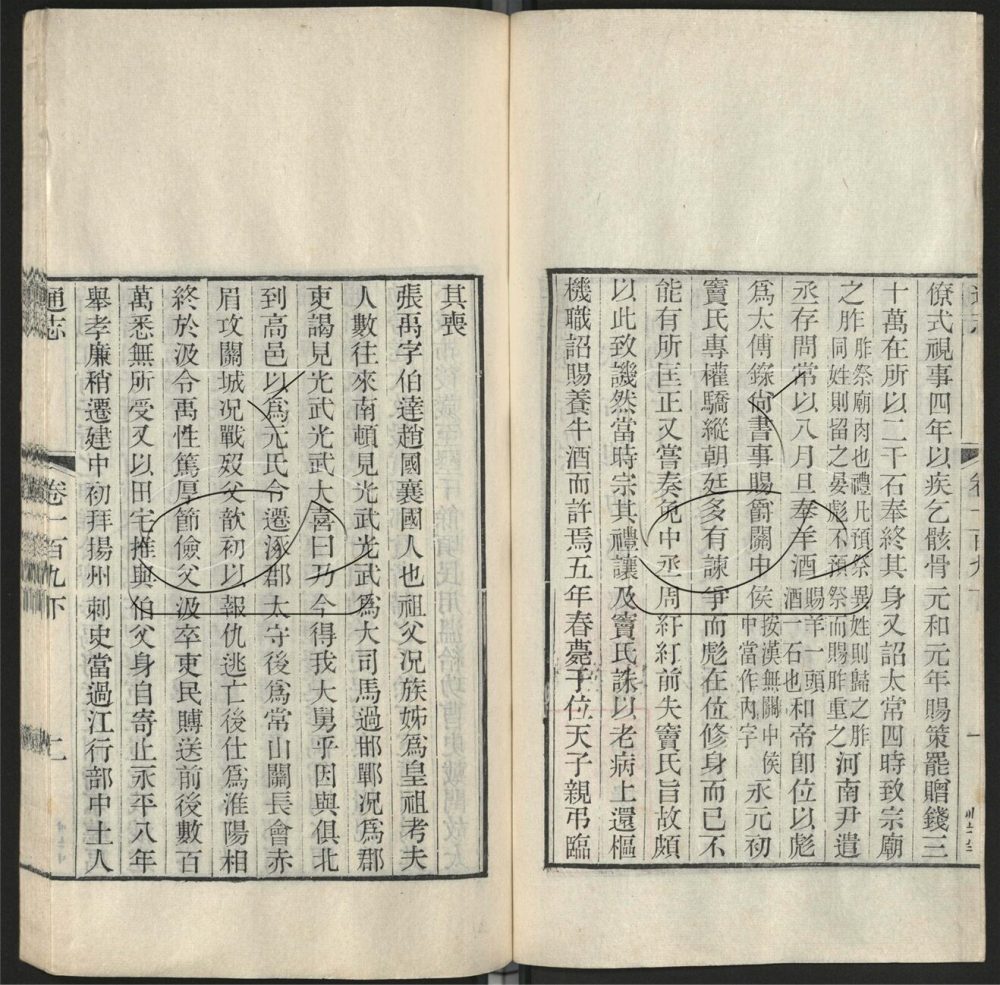 僚式視事四年以疾乞骸骨元和元年賜策罷贈錢三
十萬在所以二千石奉終其身又詔太常四時致宗廟
之胙胙祭廟肉也禮凡預祭異姓則歸之胙同姓則留之宴彪不預祭而賜胙重之河南尹遣
丞存問常以八月旦奉羊酒賜羊一頭酒一石也和帝卽位以彪
爲太傅錄尚書事賜爵關中侯按漢無關中侯中當作內字永元初
竇氏專權驕縱朝廷多有諫爭而彪在位修身而已不
能有所匡正又嘗奏免中丞周紆紆前失竇氏旨故頗
以此致譏然當時宗其禮讓及竇氏誅以老病上還樞
機職詔賜養牛酒而許焉五年春薨于位天子親弔臨
其喪
張禹字伯達趙國襄國人也祖父况族姊爲皇祖考夫
人數往來南頓見光武光武爲大司馬過邯鄲况爲郡
吏謁見光武光武大喜曰乃今得我大舅乎因與俱北
到高邑以爲元氏令遷涿郡太守後爲常山關長會赤
眉攻關城况戰歿父歆初以報仇逃亡後仕爲淮陽相
終於汲令禹性篤厚節儉父汲卒吏民賻送前後數百
萬悉無所受又以田宅推與伯父身自寄止永平八年
舉孝廉稍遷建中初拜揚州刺史當過江行部中土人
通志
卷一百九下